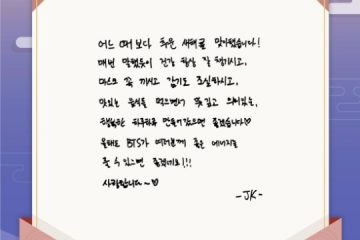 어느 때보다 추운 새해를 맞이했습니다!
매년 말했듯이 건강 항상 잘 챙기시고,
마스크 꼭 끼시고 감기도 조심하시고,
맛있는 음식들 먹으면서 뜻깊고 의미있는,
행복한 하루하루 만들어갔으면 좋겠습니다♡
올해도 BTS가 여러분께 좋은 에너지를
줄 수 있으면 좋겠네요!!!
사랑합니다~♡
-JK-